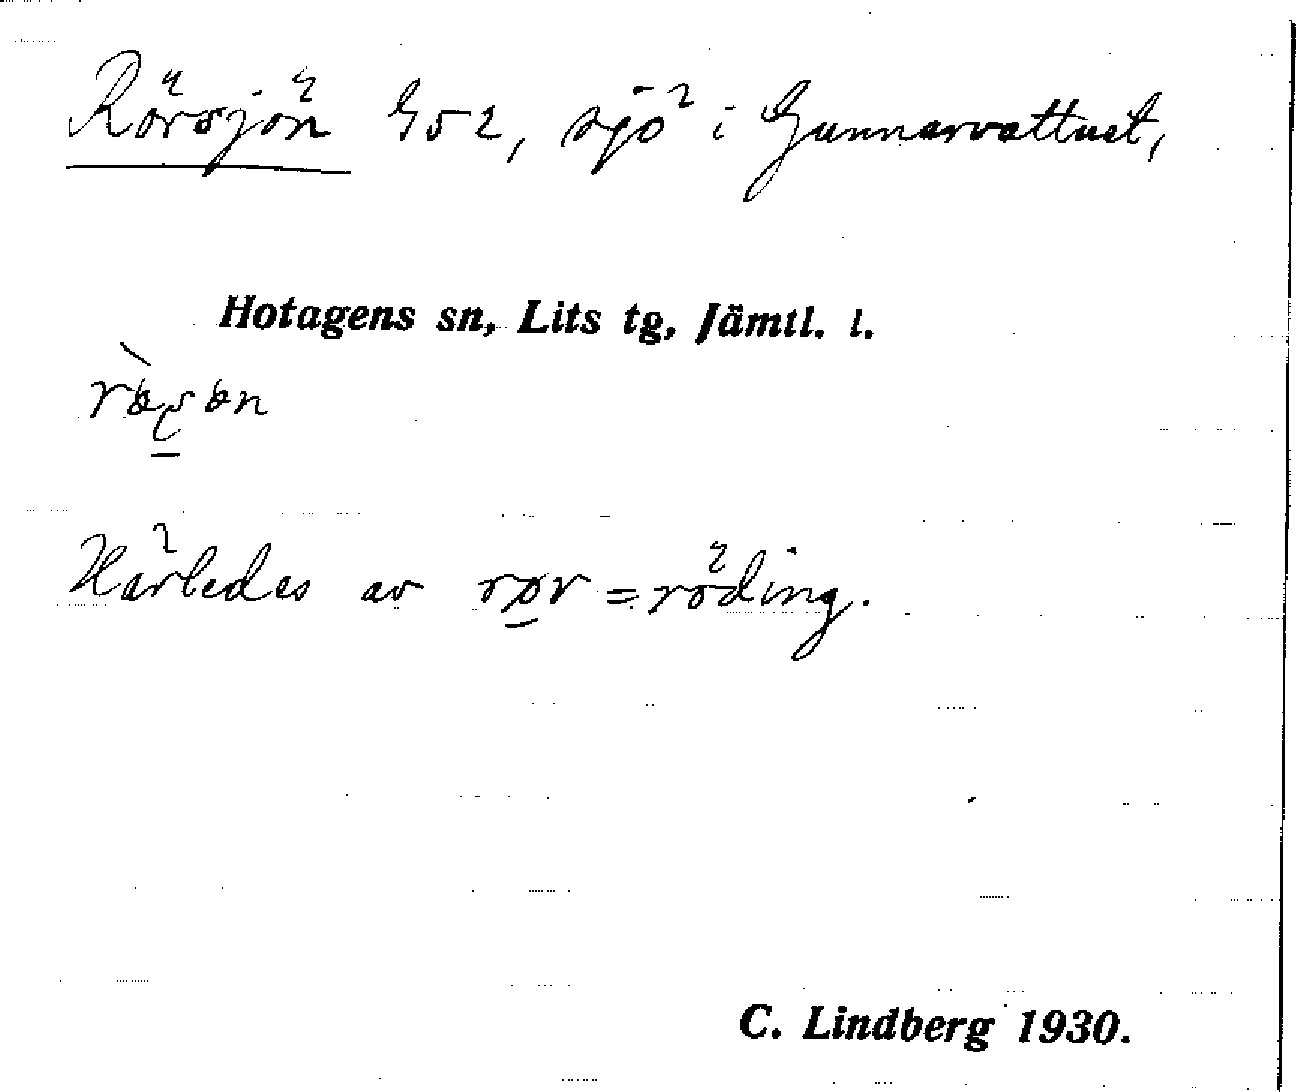 Rörsjön 452, sjö i Gunnarvattnet,
Hotagens sn, Lits tg, Jämtl. l.
Härledes av rør = röding.
C. Lindberg 1930.